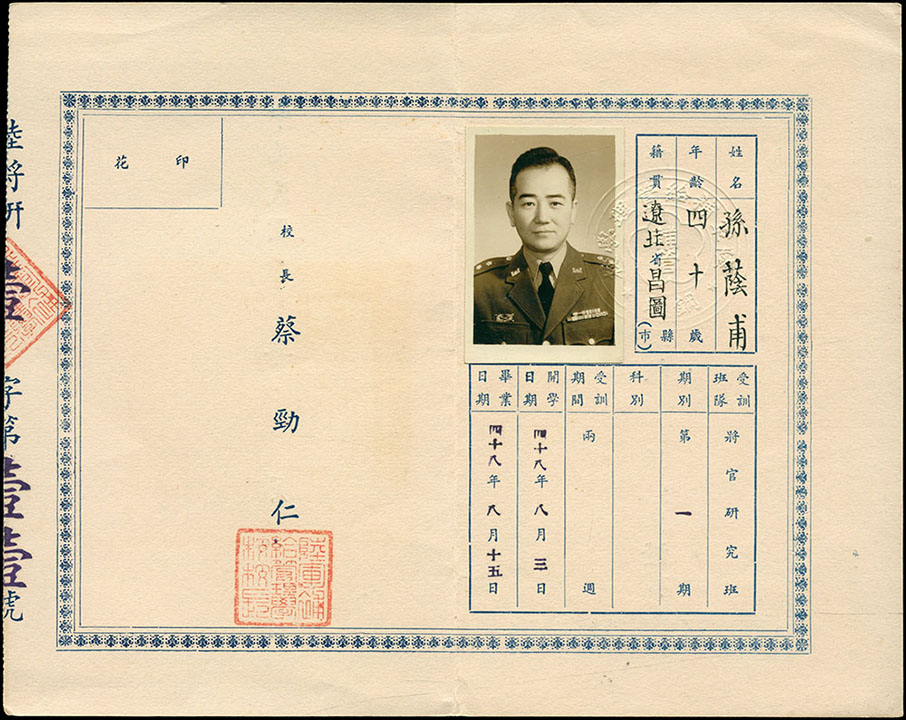 姓名 孫蔭甫
年齡 四十歲
籍貫 遼北省昌圖縣(市)
受訓班隊 將官研究班
期別 第一期
科別
受訓期間 兩週
開學日期 四十八年八月三日
畢業日期 四十八年八月十五日
校長 蔡勁仁
陸軍補給管理學校校長
印花
陸將研壹字第壹壹號